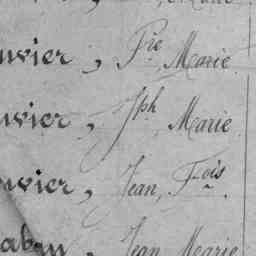 uvier, Pre Marie
uvier, Jph Marie
uvier, Jean, Fois
Jean Marie